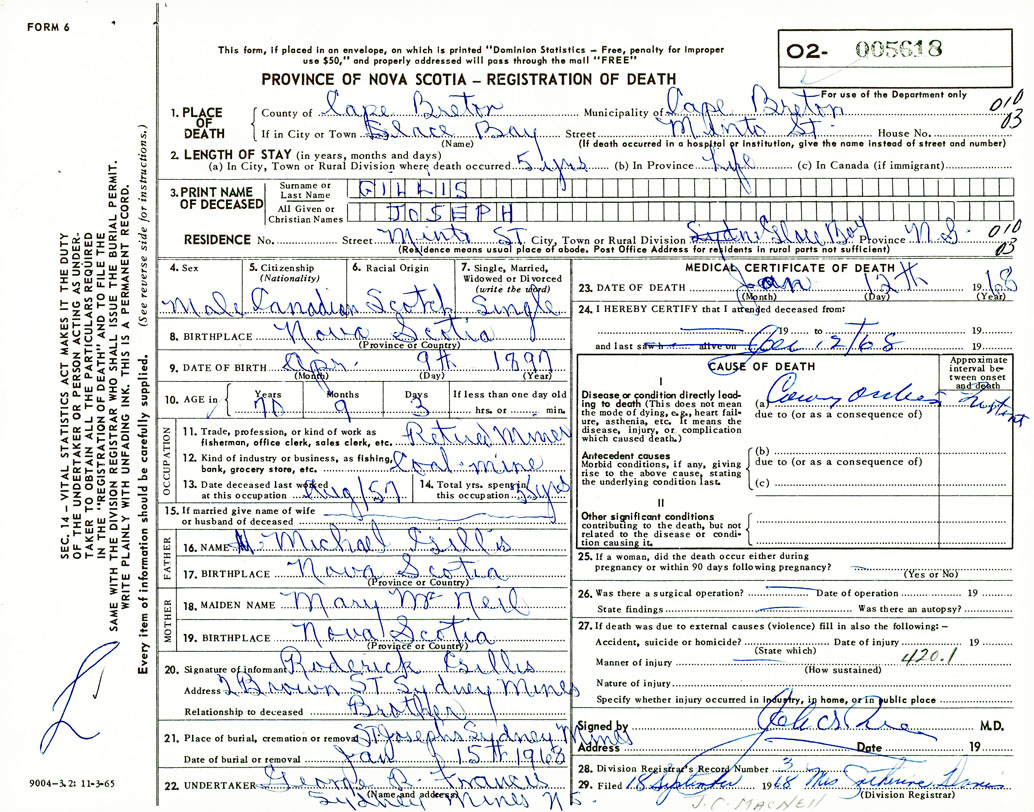 FORM 6
02- 005618
This form, if placed in an envelope, on which is printed "Dominion Statistics – Free, penalty for improper
use $50," and properly addressed will pass through the mail "FREE"
PROVINCE OF NOVA SCOTIA – REGISTRATION OF DEATH
For use of the Department only
010
03
1. PLACE OF DEATH
County of Cape Breton Municipality of Cape Breton
If in City or Town Glace Bay Street Minto St. House No.
(Name) (If death occurred in a hospital or institution, give the name instead of street and number)
2. LENGTH OF STAY (in years, months and days)
(a) In City, Town or Rural Division where death occurred 5 yrs (b) In Province Life (c) In Canada (if immigrant)
3. PRINT NAME OF DECEASED
Surname or Last Name GILLIS
All Given or Christian Names JOSEPH
RESIDENCE No. Street Minto ST City, Town or Rural Division Glace Bay Province N.S.
(Residence means usual place of abode. Post Office Address for residents in rural parts not sufficient)
010
03
4. Sex 5. Citizenship (Nationality) 6. Racial Origin 7. Single, Married, Widowed or Divorced (write the word)
Male Canadian Scotch Single
8. BIRTHPLACE Nova Scotia
(Province or Country)
9. DATE OF BIRTH Apr. 9th 1897
(Month) (Day) (Year)
10. AGE in Years Months Days If less than one day old
70 9 3 hrs. or min.
OCCUPATION
11. Trade, profession, or kind of work as fisherman, office clerk, sales clerk, etc. Retired Miner
12. Kind of industry or business, as fishing, bank, grocery store, etc. Coal mine
13. Date deceased last worked at this occupation Aug/57 14. Total yrs. spent in this occupation yrs
15. If married give name of wife or husband of deceased
FATHER
16. NAME Michael Gillis
17. BIRTHPLACE Nova Scotia
(Province or Country)
MOTHER
18. MAIDEN NAME Mary McNeil
19. BIRTHPLACE Nova Scotia
(Province or Country)
20. Signature of informant Roderick Gillis
Address 2 Brown ST Sydney Mines
Relationship to deceased Brother
21. Place of burial, cremation or removal ST Josephs Sydney Mines
Date of burial or removal Jan 15th 1968
22. UNDERTAKER George B. Francis
(Name and address) Sydney Mines N S.
MEDICAL CERTIFICATE OF DEATH
23. DATE OF DEATH Jan 12th 1968
(Month) (Day) (Year)
24. I HEREBY CERTIFY that I attended deceased from:
19 to 19
and last saw h alive on 12/68 19
CAUSE OF DEATH
Approximate interval between onset and death
I
Disease or condition directly leading to death (This does not mean the mode of dying, e.g., heart failure, asthenia, etc. It means the disease, injury, or complication which caused death.)
(a) Coronary
Instant
due to (or as a consequence of)
Antecedent causes
Morbid conditions, if any, giving rise to the above cause, stating the underlying condition last.
(b)
due to (or as a consequence of)
(c)
II
Other significant conditions
contributing to the death, but not related to the disease or condition causing it.
25. If a woman, did the death occur either during
pregnancy or within 90 days following pregnancy?
(Yes or No)
26. Was there a surgical operation? Date of operation 19
State findings Was there an autopsy?
27. If death was due to external causes (violence) fill in also the following: –
Accident, suicide or homicide? Date of injury 19
(State which)
Manner of injury 420.1
(How sustained)
Nature of injury
Specify whether injury occurred in industry, in home, or in public place
Signed by M.D.
Address Date 19
28. Division Registrar's Record Number 3
29. Filed 18 September 1968 Mrs Catherine
(Division Registrar)
J.C. MACNEIL
SEC. 14 – VITAL STATISTICS ACT MAKES IT THE DUTY
OF THE UNDERTAKER OR PERSON ACTING AS UNDER-
TAKER TO OBTAIN ALL THE PARTICULARS REQUIRED
IN THE "REGISTRATION OF DEATH" AND TO FILE THE
SAME WITH THE DIVISION REGISTRAR WHO SHALL ISSUE THE BURIAL PERMIT.
WRITE PLAINLY WITH UNFADING INK. THIS IS A PERMANENT RECORD.
Every item of information should be carefully supplied. (See reverse side for instructions.)
9004-3.2: 11-3-65